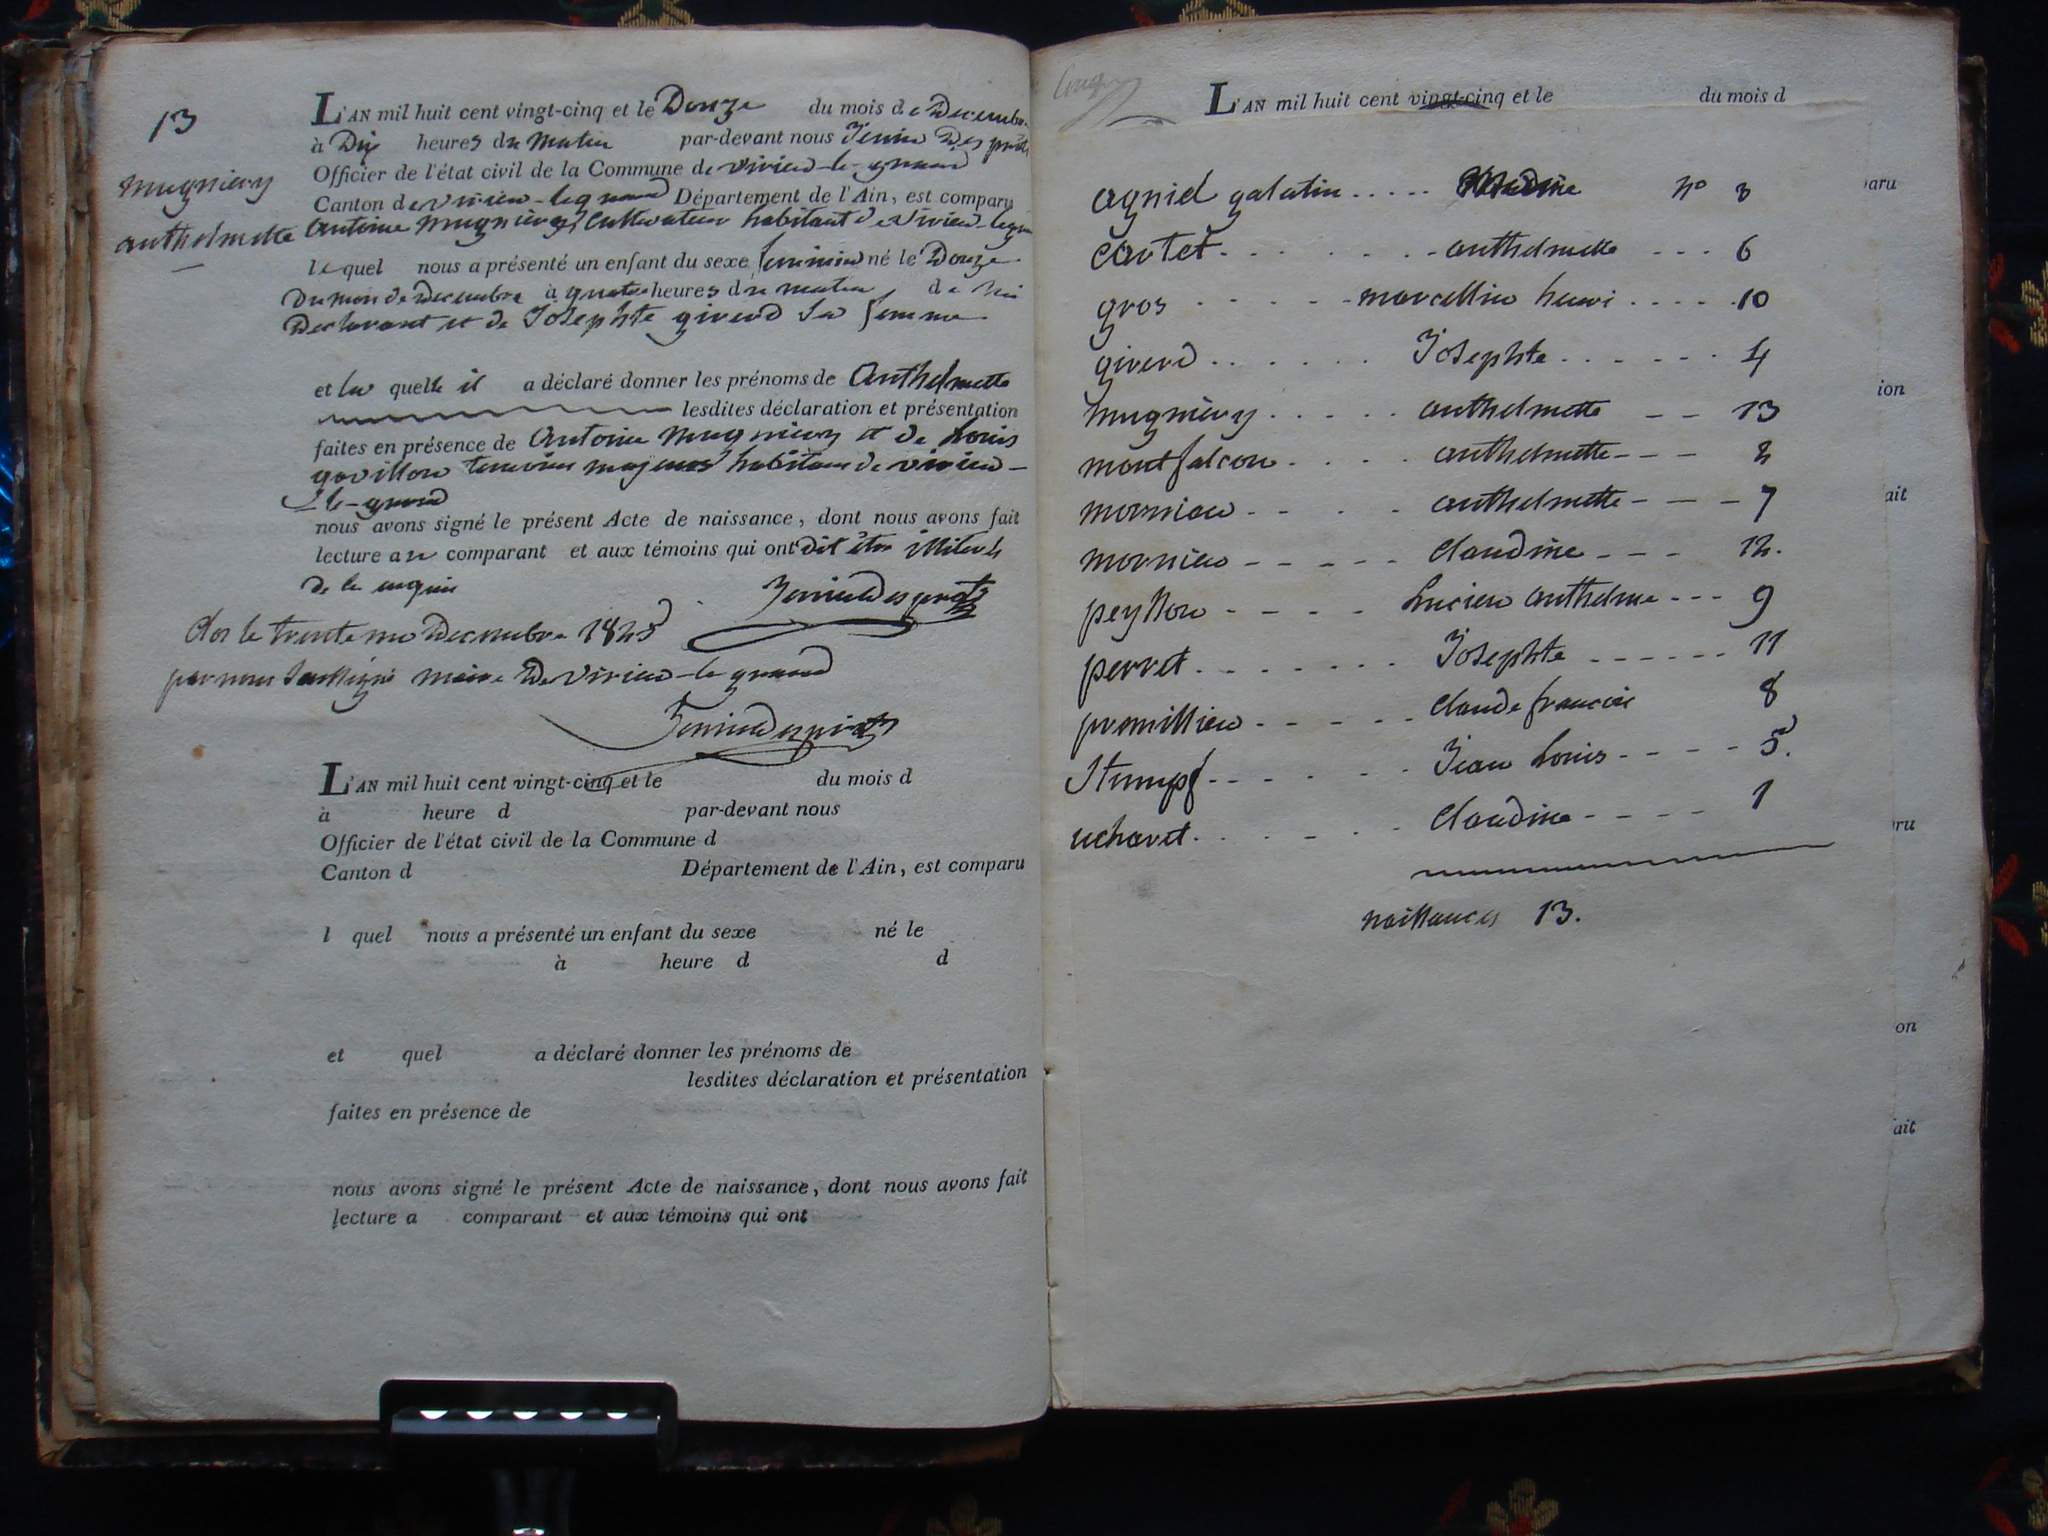 13
mugniery
anthelmette
L'AN mil huit cent vingt-cinq et le Douze du mois de Decembre
à Dix heures du matin par-devant nous Jenin Des prots
Officier de l'état civil de la Commune de virieu-le-grand
Canton de virieu-le grand Département de l'Ain, est comparu
antoine mugniery Cultivateur habitant de virieu-le gran
lequel nous a présenté un enfant du sexe feminin né le Douze
Du mois de Decembre à quatre heures du matin de lui
Declarant et de Josephte giverd Sa femme
et la quelle il a déclaré donner les prénoms de anthelmette
lesdites déclaration et présentation
faites en présence de antoine mugniery et de Louis
govillon temoins majeurs habitans de virieu-
le-grand
nous avons signé le présent Acte de naissance, dont nous avons fait
lecture au comparant et aux témoins qui ont dit être illiterés
de ce requis
Jenin Desprots
Clos le trente un Decembre 1825
par nous Soussigné maire De virieu-le grand
Jenin Desprots
L'AN mil huit cent vingt-cinq et le du mois d
à heure d par-devant nous
Officier de l'état civil de la Commune d
Canton d Département de l'Ain, est comparu
l quel nous a présenté un enfant du sexe né le
à heure d d
et quel a déclaré donner les prénoms de
lesdites déclaration et présentation
faites en présence de
nous avons signé le présent Acte de naissance, dont nous avons fait
lecture a comparant et aux témoins qui ont
L'AN mil huit cent vingt-cinq et le du mois d
agniel galatin ..... Claudine no 3
cartet ....... anthelmette --- 6
gros ..... marcellin henri ..... 10
giverd ...... Josephte ...... 4
mugniery ..... anthelmette -- 13
montfalcon .... anthelmette --- 2
mornieu ---- anthelmette --- 7
mornieu ----- claudine --- 12.
peysson ---- Lucien anthelme --- 9
perret ....... Josephte ------ 11
promillieu ----- claude francois 8
Stumpf ------ Jean Louis ---- 5.
uchard ...... claudine ---- 1
naissances 13.
aru
ion
ait
ru
on
ait